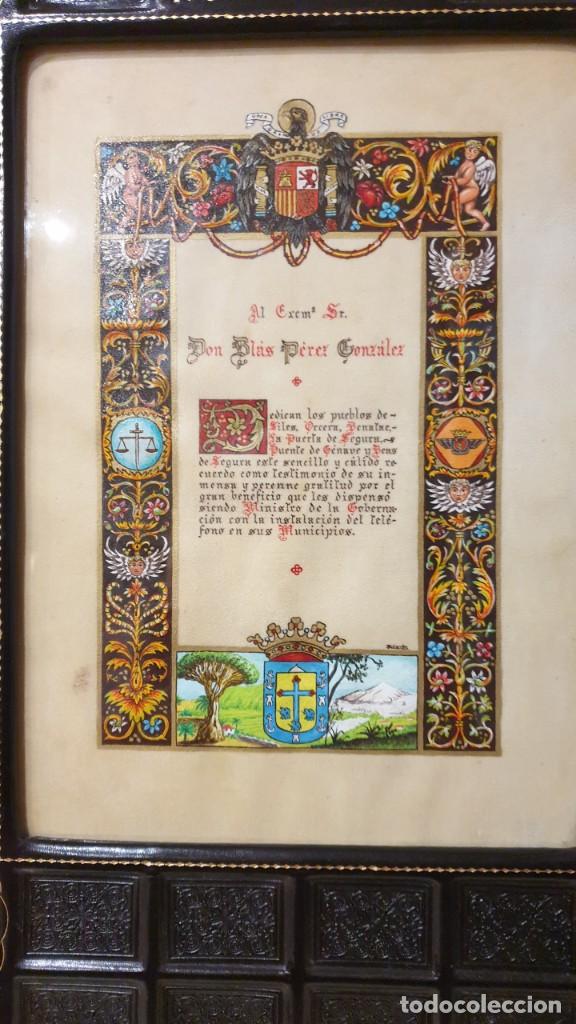 UNA GRANDE LIBRE
Al Excmº Sr.
Don Blás Pérez González
Dedican los pueblos de-
Siles, Orcera, Benatae,-
La Puerta de Segura,~
Puente de Génave y Beas
de Segura este sencillo y cálido re-
cuerdo como testimonio de su in-
mensa y perenne gratitud por el
gran beneficio que les dispensó
siendo Ministro de la Goberna-
ción con la instalación del telé-
fono en sus Municipios.
todocoleccion